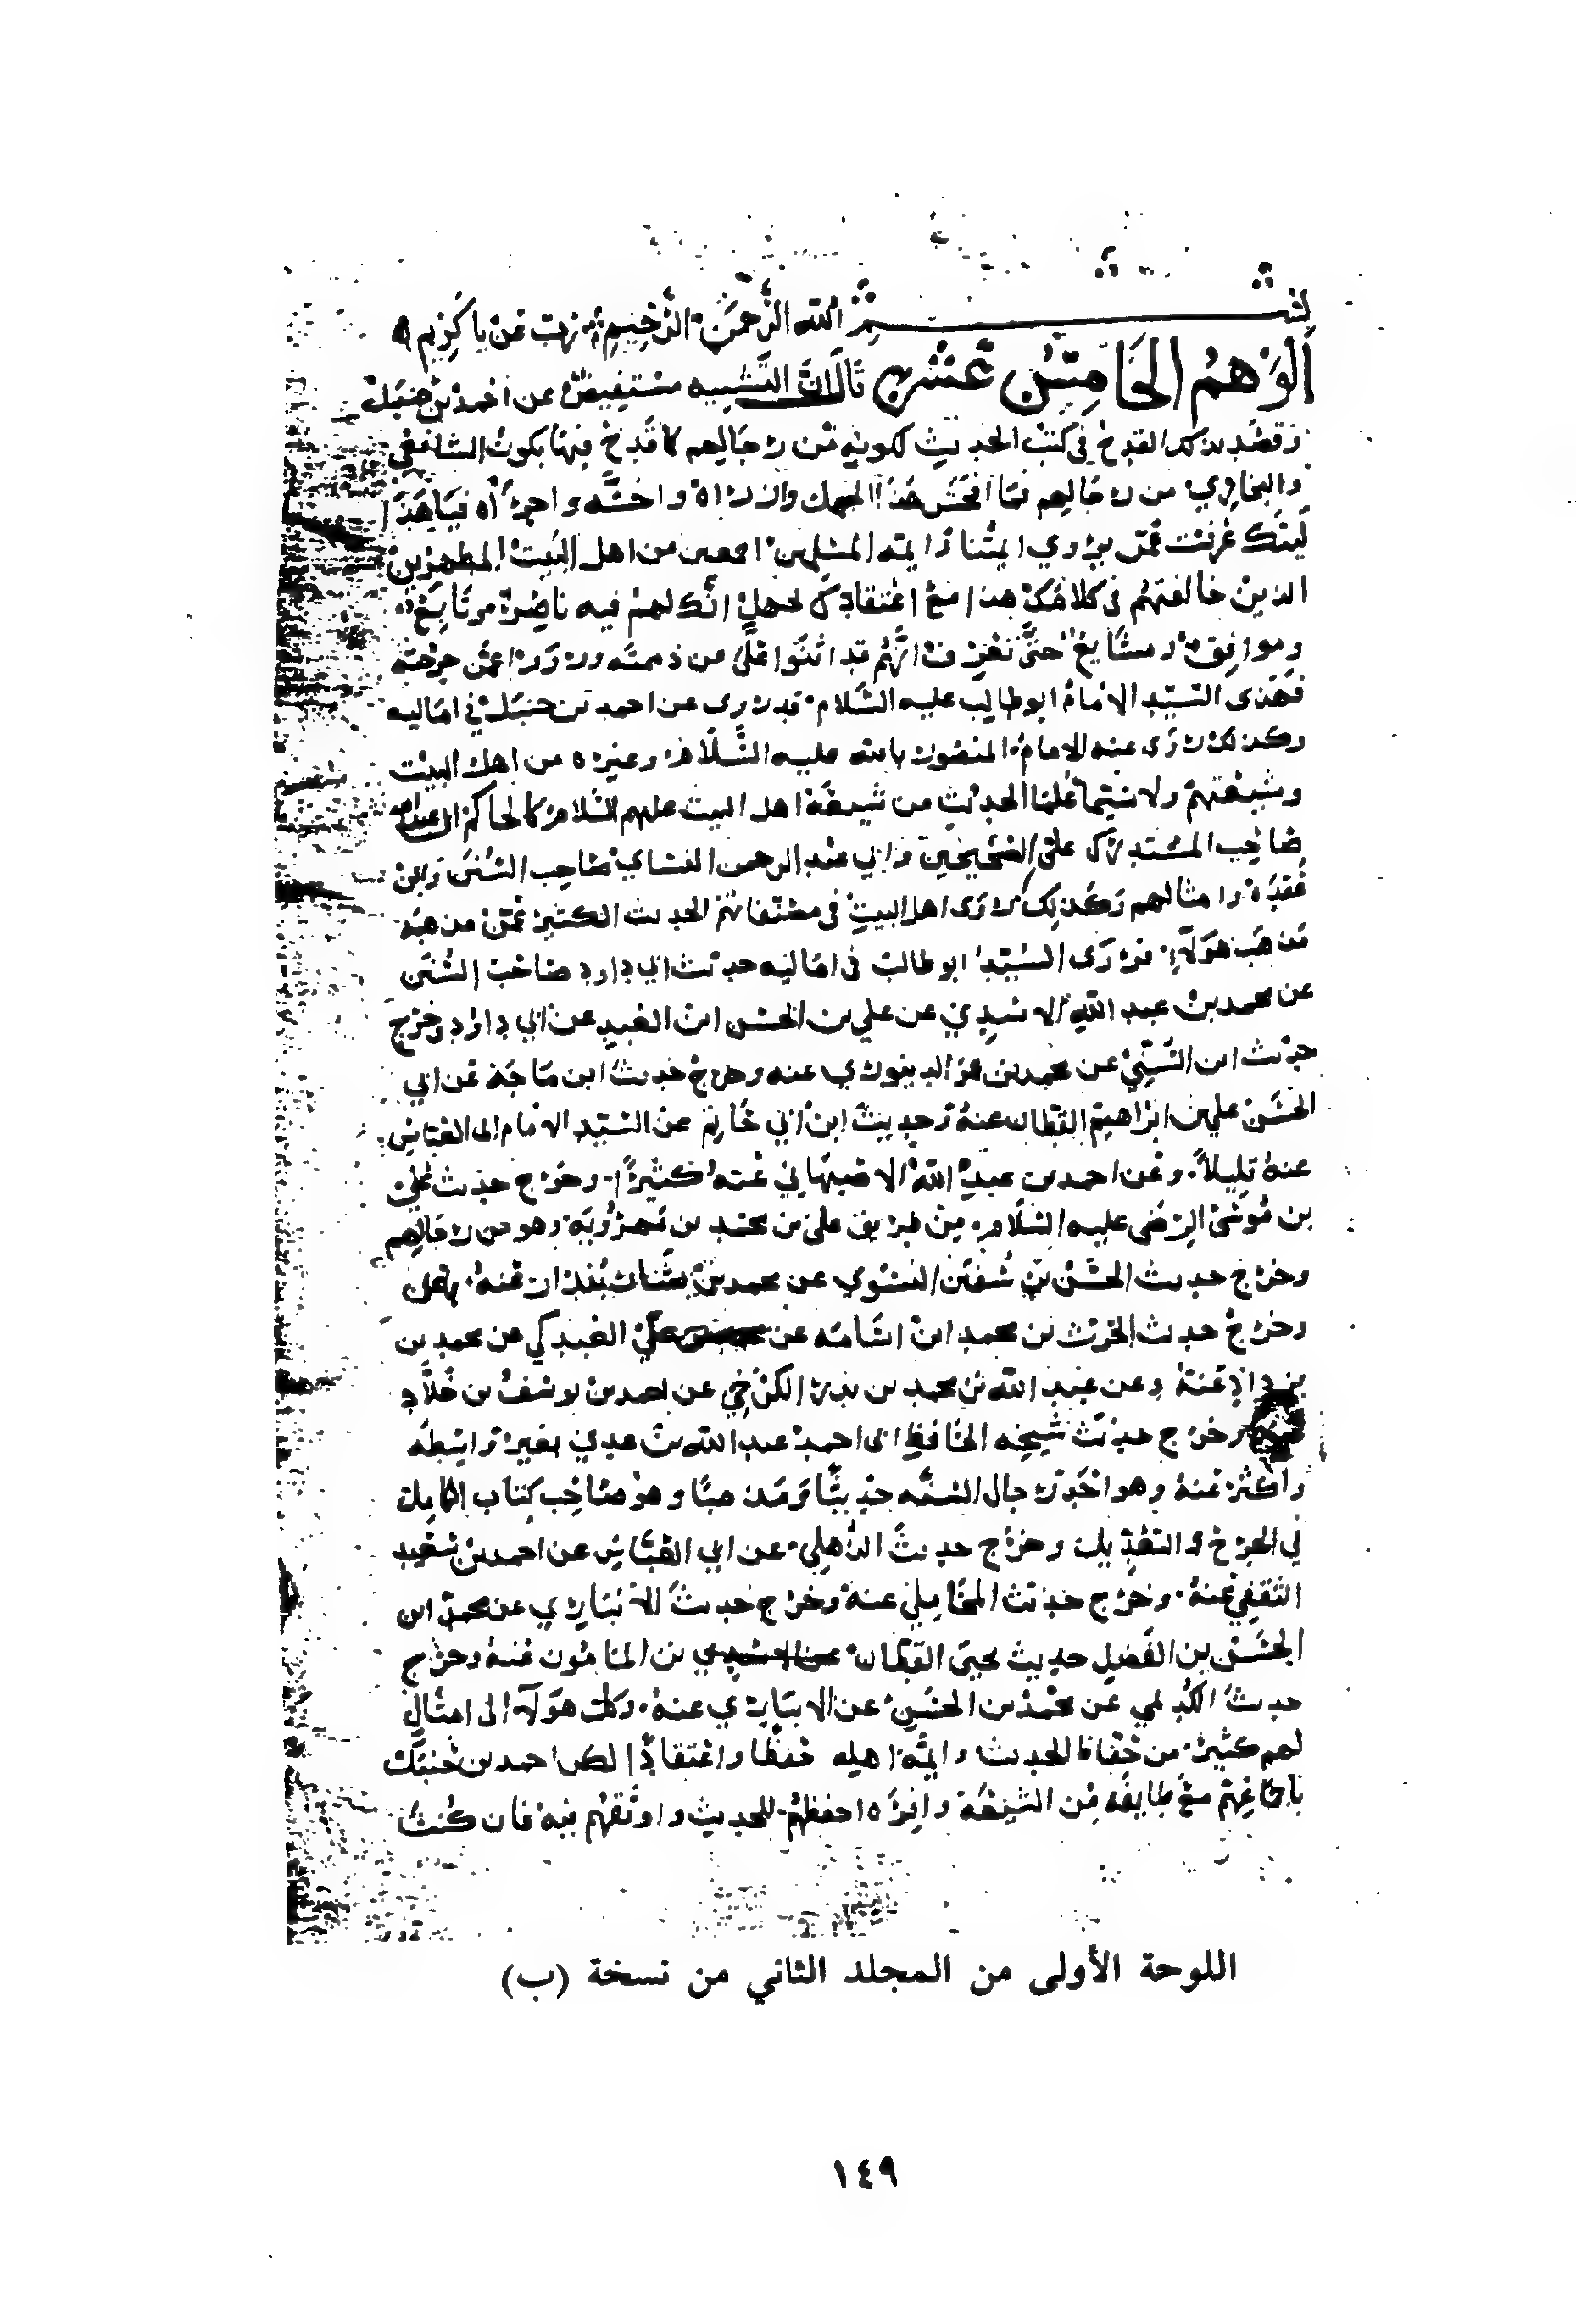 بسم الله الرحمن الرحيم رب عن يا كريم
الوهم الخامس عشر قال ان التشبيه مستفيض عن احمد بن حنبل
وقصد بذلك القدح في كتب الحديث لكونه من رجالهم كما قدح فيها بكون الشافعي
والبخاري من رجالهم فما افحش هذا الجهل وازراه واخسه واجراه فيا هذا
ليتك عرفت عمن يروي ايمتنا وايمة المسلمين اجمعين من اهل البيت المطهرين
الذين خالفتهم في كلامك هذا مع اعتقادك لجهلك انك لهم فيه ناصر ومتابع
وموافق ومشايع حتى تعرف انهم قد اثنوا على من ذممته ورووا عمن جرحته
فهذى السيد الامام ابو طالب عليه السلام قد روى عن احمد بن حنبل في اماليه
وكذلك روى عنه الامام المنصور بالله عليه السلام وغيره من اهل البيت
وشيعتهم ولا سيما علما الحديث من شيعة اهل البيت عليهم السلام كالحاكم ابي عبد الله
صاحب المستدرك على الصحيحين وابي عبد الرحمن النساي صاحب السنن وابن
عقدة وامثالهم وكذلك روى اهل البيت في مصنفاتهم الحديث الكثير عمن مذهبه
مذهب هولاء فروى السيد ابو طالب في اماليه حديث ابي داود صاحب السنن
عن محمد بن عبد الله الاسدي عن علي بن الحسن ابن العبد عن ابي داود وخرج
حديث ابن السني عن محمد بن عمر الدينوري عنه وخرج حديث ابن ماجه عن ابي
الحسن علي بن ابراهيم القطان عنه وحديث ابن ابي حاتم عن السيد الامام ابي العباس
عنه قليلا وعن احمد بن عبد الله الاصبهاني عنه كثيرا وخرج حديث علي
بن موسى الرضى عليه السلام من طريق علي بن محمد بن مهرويه وهو من رجالهم
وخرج حديث الحسن بن سفين النسوي عن محمد بن بشار بندار عنه
وخرج حديث الحرث بن محمد ابن اسامه عن علي العبدكي عن محمد بن
يزداد عنه وعن عبد الله بن محمد بن بدر الكرخي عن احمد بن يوسف بن خلاد
وخرج حديث شيخه الحافظ ابي احمد عبد الله بن عدي بغير واسطه
واكثر عنه وهو احد رجال السنه حديثا ومذهبا وهو صاحب كتاب الكامل
في الجرح والتعديل وخرج حديث الذهلي عن ابي العباس عن احمد بن سعيد
الثقفي عنه وخرج حديث المحاملي عنه وخرج حديث الانباري عن محمد ابن
الحسن بن الفضل حديث يحيى القطان بن المامون عنه وخرج
حديث الكديمي عن محمد بن الحسن عن الانباري عنه وكل هولاء الى امثال
لهم كثير من حفاظ الحديث وايمة اهله حفظا واعتقادا لكن احمد بن حنبل
باجماعهم مع طايفة من الشيعة وافره احفظهم للحديث واوثقهم فيه فان كنت
اللوحة الأولى من المجلد الثاني من نسخة (ب)
١٤٩